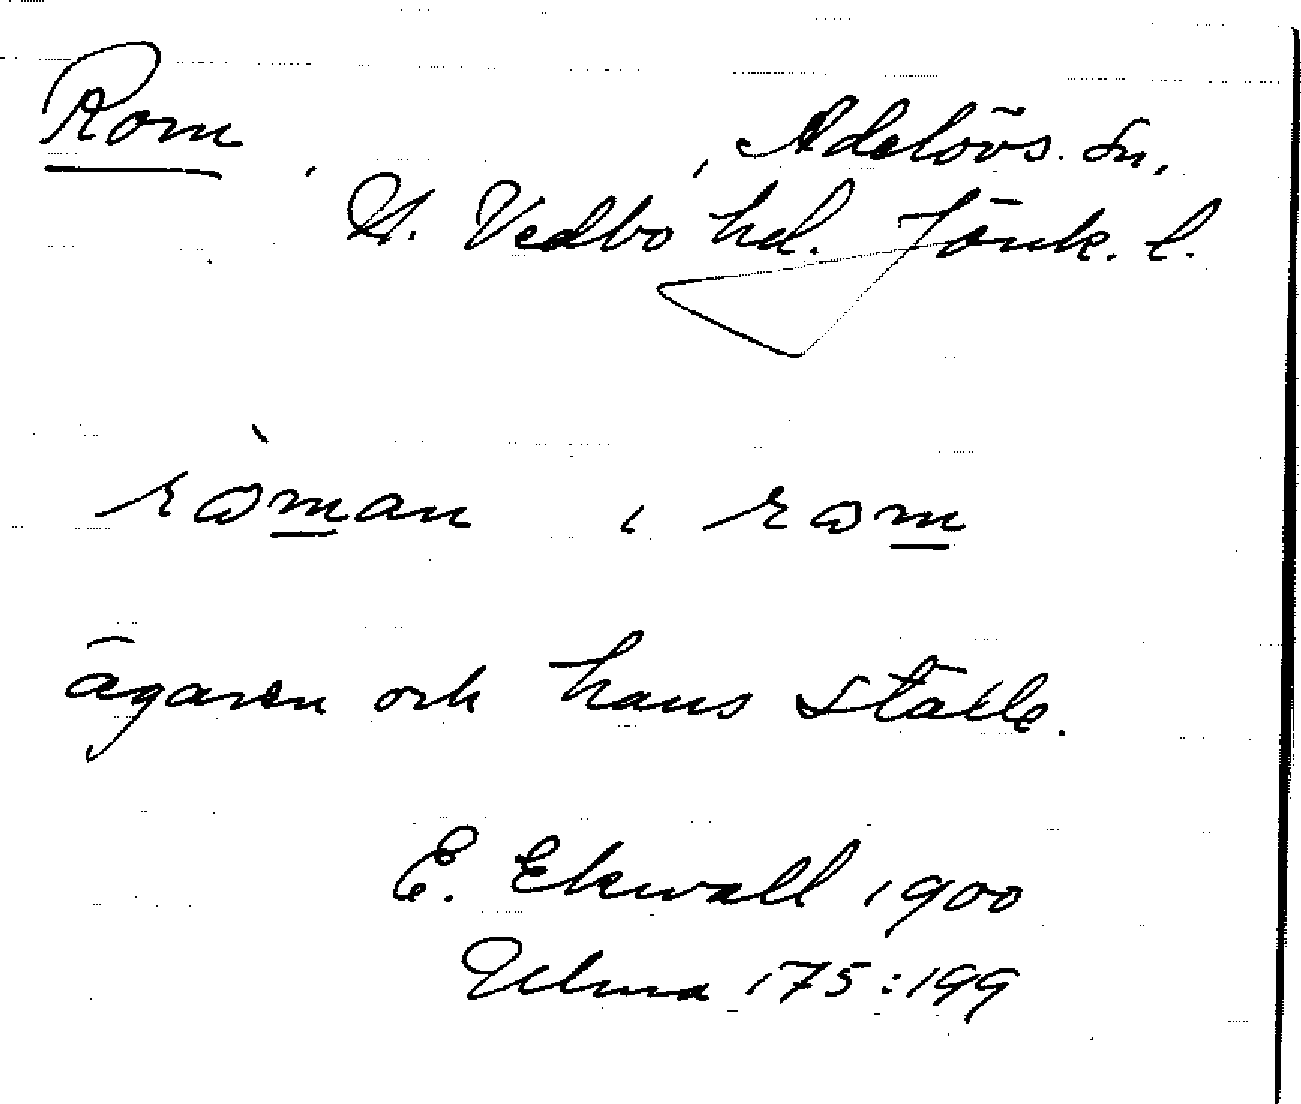 Rom , , Adelövs. sn.
N. Vedbo hd. Jönk. l.
ròman , rom
ägaren och hans ställe.
E. Ekwall 1900
Ulma 175:199